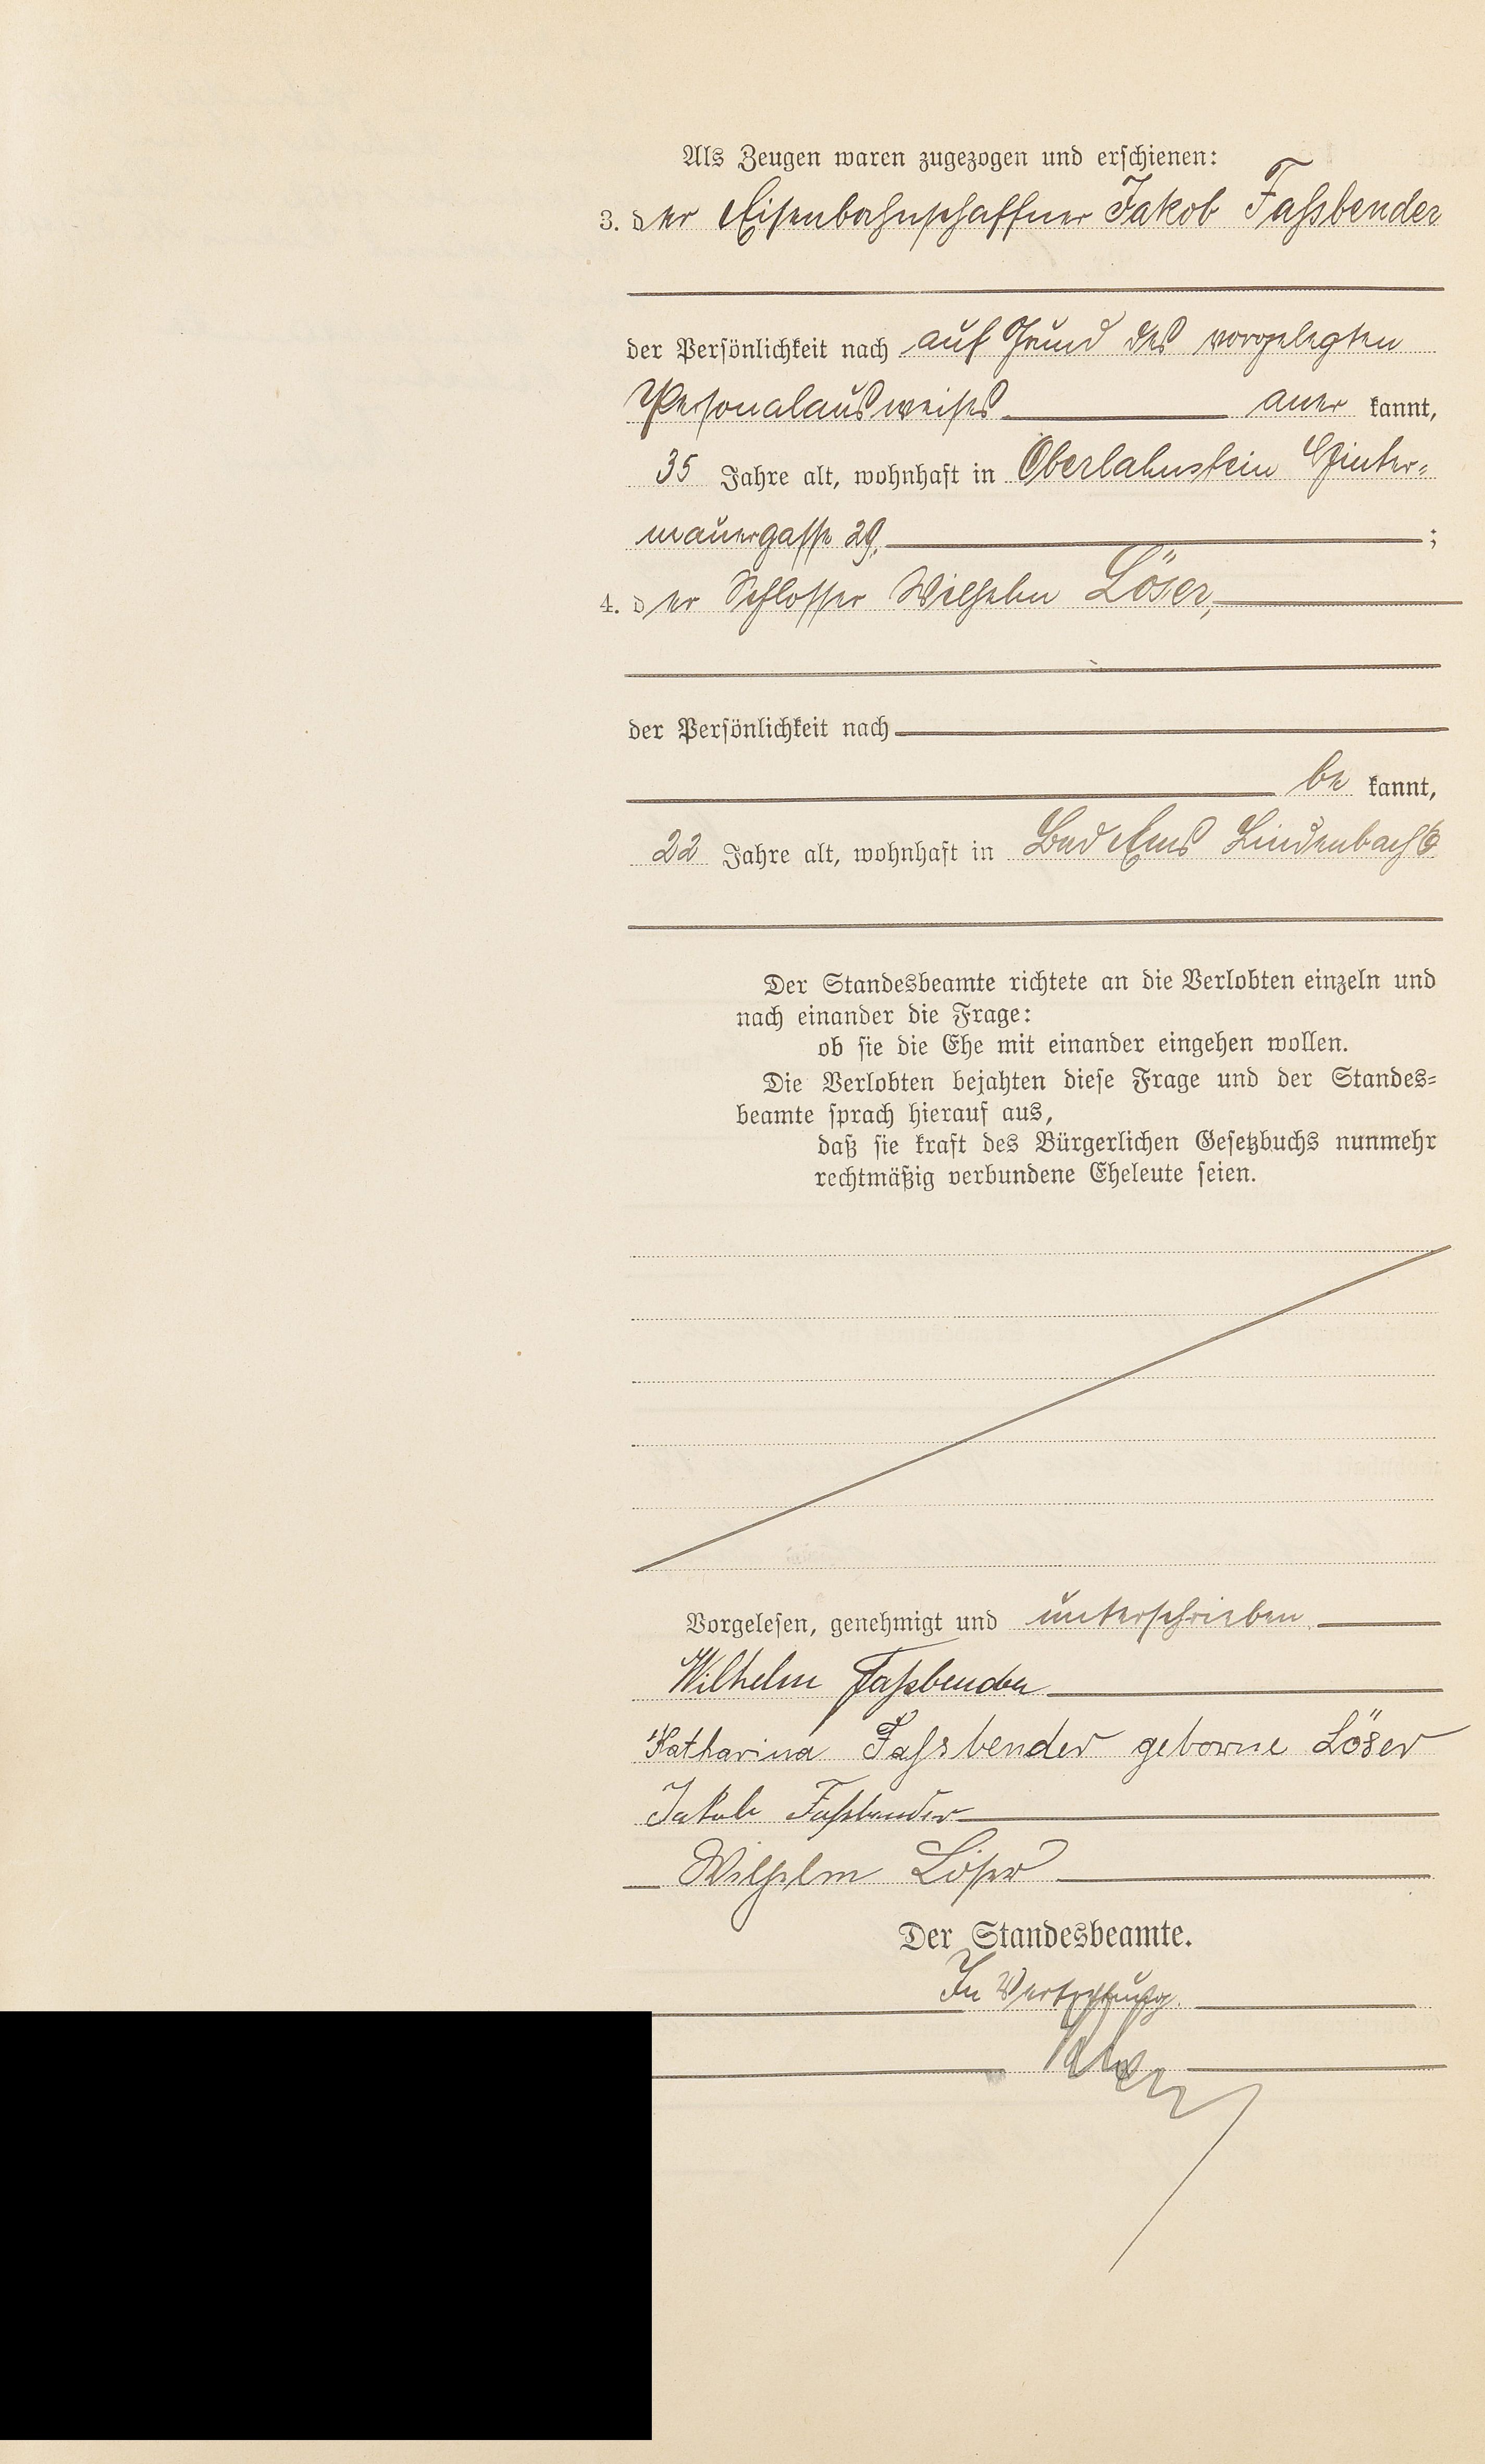 Als Zeugen waren zugezogen und erschienen:
3. der Eisenbahnschaffner Jakob Fassbender
der Persönlichkeit nach auf Grund des vorgelegten
Personalausweises anerkannt,
35 Jahre alt, wohnhaft in Oberlahnstein Hinter-
mauergasse 29. ;
4. der Schlosser Wilhelm Löser,
der Persönlichkeit nach
bekannt,
22 Jahre alt, wohnhaft in Bad Ems Lindenbach 6
Der Standesbeamte richtete an die Verlobten einzeln und
nach einander die Frage:
ob sie die Ehe mit einander eingehen wollen.
Die Verlobten bejahten diese Frage und der Standes-
beamte sprach hierauf aus,
daß sie kraft des Bürgerlichen Gesetzbuchs nunmehr
rechtmäßig verbundene Eheleute seien.
Vorgelesen, genehmigt und unterschrieben
Wilhelm Fassbender
Katharina Fassbender geborne Löser
Jakob Fassbender
Wilhelm Löser
Der Standesbeamte.
In Vertretung.